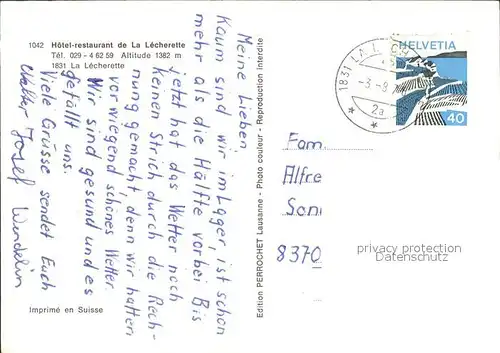 1042 Hôtel-restaurant de La Lécherette
Tél. 029 - 4 62 59 Altitude 1382 m
1831 La Lécherette
Meine Lieben
Kaum sind wir im Lager, ist schon
mehr als die Hälfte vorbei Bis
jetzt hat das Wetter noch
keinen Strich durch die Rech-
nung gemacht, denn wir hatten
vorwiegend schönes Wetter.
Wir sind gesund und es
gefällt uns.
Viele Grüsse sendet Euch
Josef Wendelin
Imprimé en Suisse
Edition PERROCHET Lausanne - Photo couleur - Reproduction interdite
1831 LA L
-3.-8
2a
HELVETIA
40
Fam.
Alfre
Soni
8370
privacy protection
Datenschutz